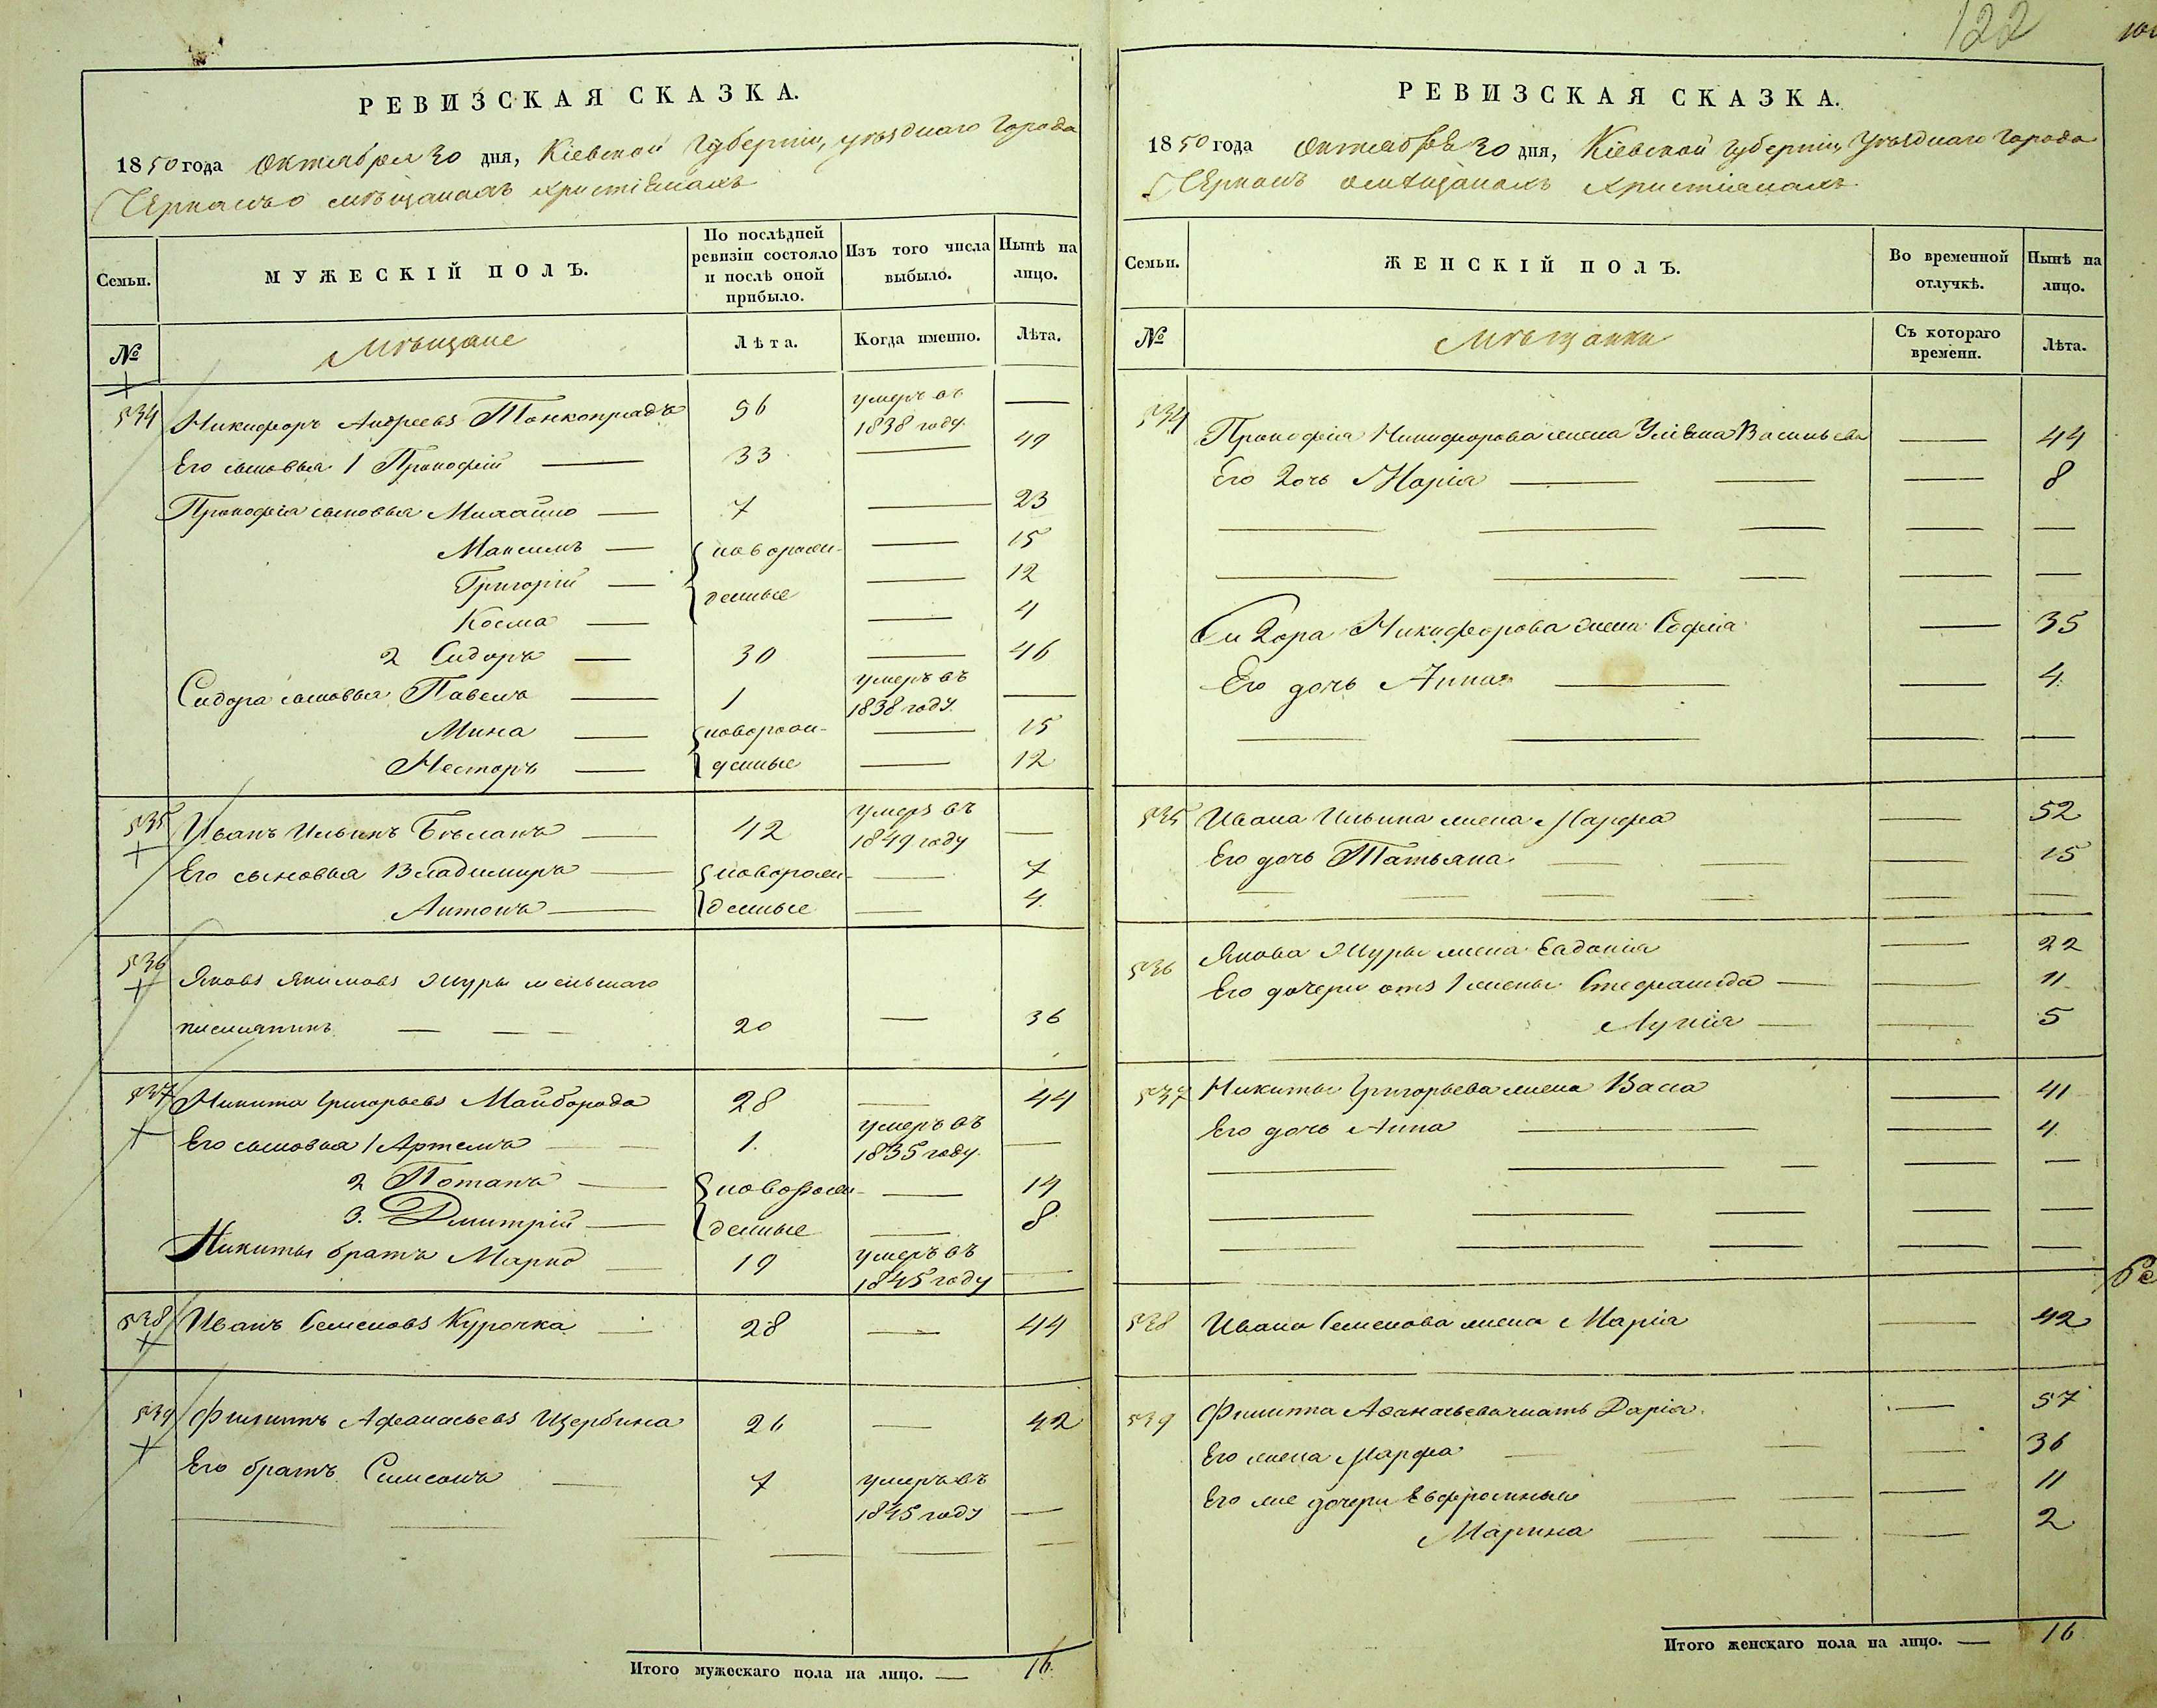 122
РЕВИЗСКАЯ СКАЗКА.
1850 года Октября 30 дня, Кіевской Губерніи, уѣзднаго Города
Черкасъ о мѣщанахъ христіянахъ
Семьи. МУЖЕСКІЙ ПОЛЪ. По послѣдней ревизіи состояло и послѣ оной прибыло. Изъ того числа выбыло. Нынѣ на лицо.
№ Мѣщане Лѣта. Когда именно. Лѣта.
534 Никифоръ Андреевъ Тонкопрядъ 56 умеръ въ 1838 году —
Его сыновья 1 Прокофій — 33 — 49
Прокофія сыновья Михайло — 7 — 23
Максимъ — новорож- — 15
Григорій — денные — 12
Косма — — 4
2 Сидоръ — 30 — 46
Сидора сыновья Павелъ — 1 умеръ въ 1838 году —
Мина — новорож- — 15
Несторъ — денные — 12
535 Иванъ Ильинъ Бѣланъ — 42 умеръ въ 1849 году —
Его сыновья Владимиръ — новорож- — 7
Антонъ — денные — 4
536 Яковъ Якимовъ Журы меньшаго
— — — 20 — 36
537 Никита Григорьевъ Майборода 28 — 44
Его сыновья 1 Артемъ — 1. умеръ въ 1835 году —
2 Потапъ — новорож- — 14
3. Дмитрій — денные — 8
Никиты братъ Марко — 19 умеръ въ 1845 году —
538 Иванъ Семеновъ Курочка — 28 — 44
539 Филиппъ Афанасьевъ Щербина 26 — 42
Его братъ Симеонъ — 7 умеръ въ 1845 году —
Итого мужескаго пола на лицо. — 16.
РЕВИЗСКАЯ СКАЗКА.
1850 года Октября 30 дня, Кіевской Губерніи, Уѣзднаго Города
Черкасъ о мѣщанахъ Христіянахъ
Семьи. ЖЕНСКІЙ ПОЛЪ. Во временной отлучкѣ. Нынѣ на лицо.
№ Мѣщанки Съ котораго времени. Лѣта.
534 Прокофія Никифорова жена Уліяна Васильева — 44
Его дочь Марія — — — 8
Сидора Никифорова жена Софія — 35
Его дочь Анна — — 4
535 Ивана Ильина жена Марфа — 52
Его дочь Татьяна — — — 15
536 Якова Журы жена Евдокія — 22
Его дочери отъ 1 жены Стефанида — — 11
Лукія — — 5
537 Никиты Григорьева жена Васса — 41
Его дочь Анна — — 4
538 Ивана Семенова жена Марія — 42
539 Филиппа Афанасьева мать Дарія — 57
Его жена Марфа — — — 36
Его же дочери Евфросинья — — — 11
Марина — — — 2
Итого женскаго пола на лицо. — 16